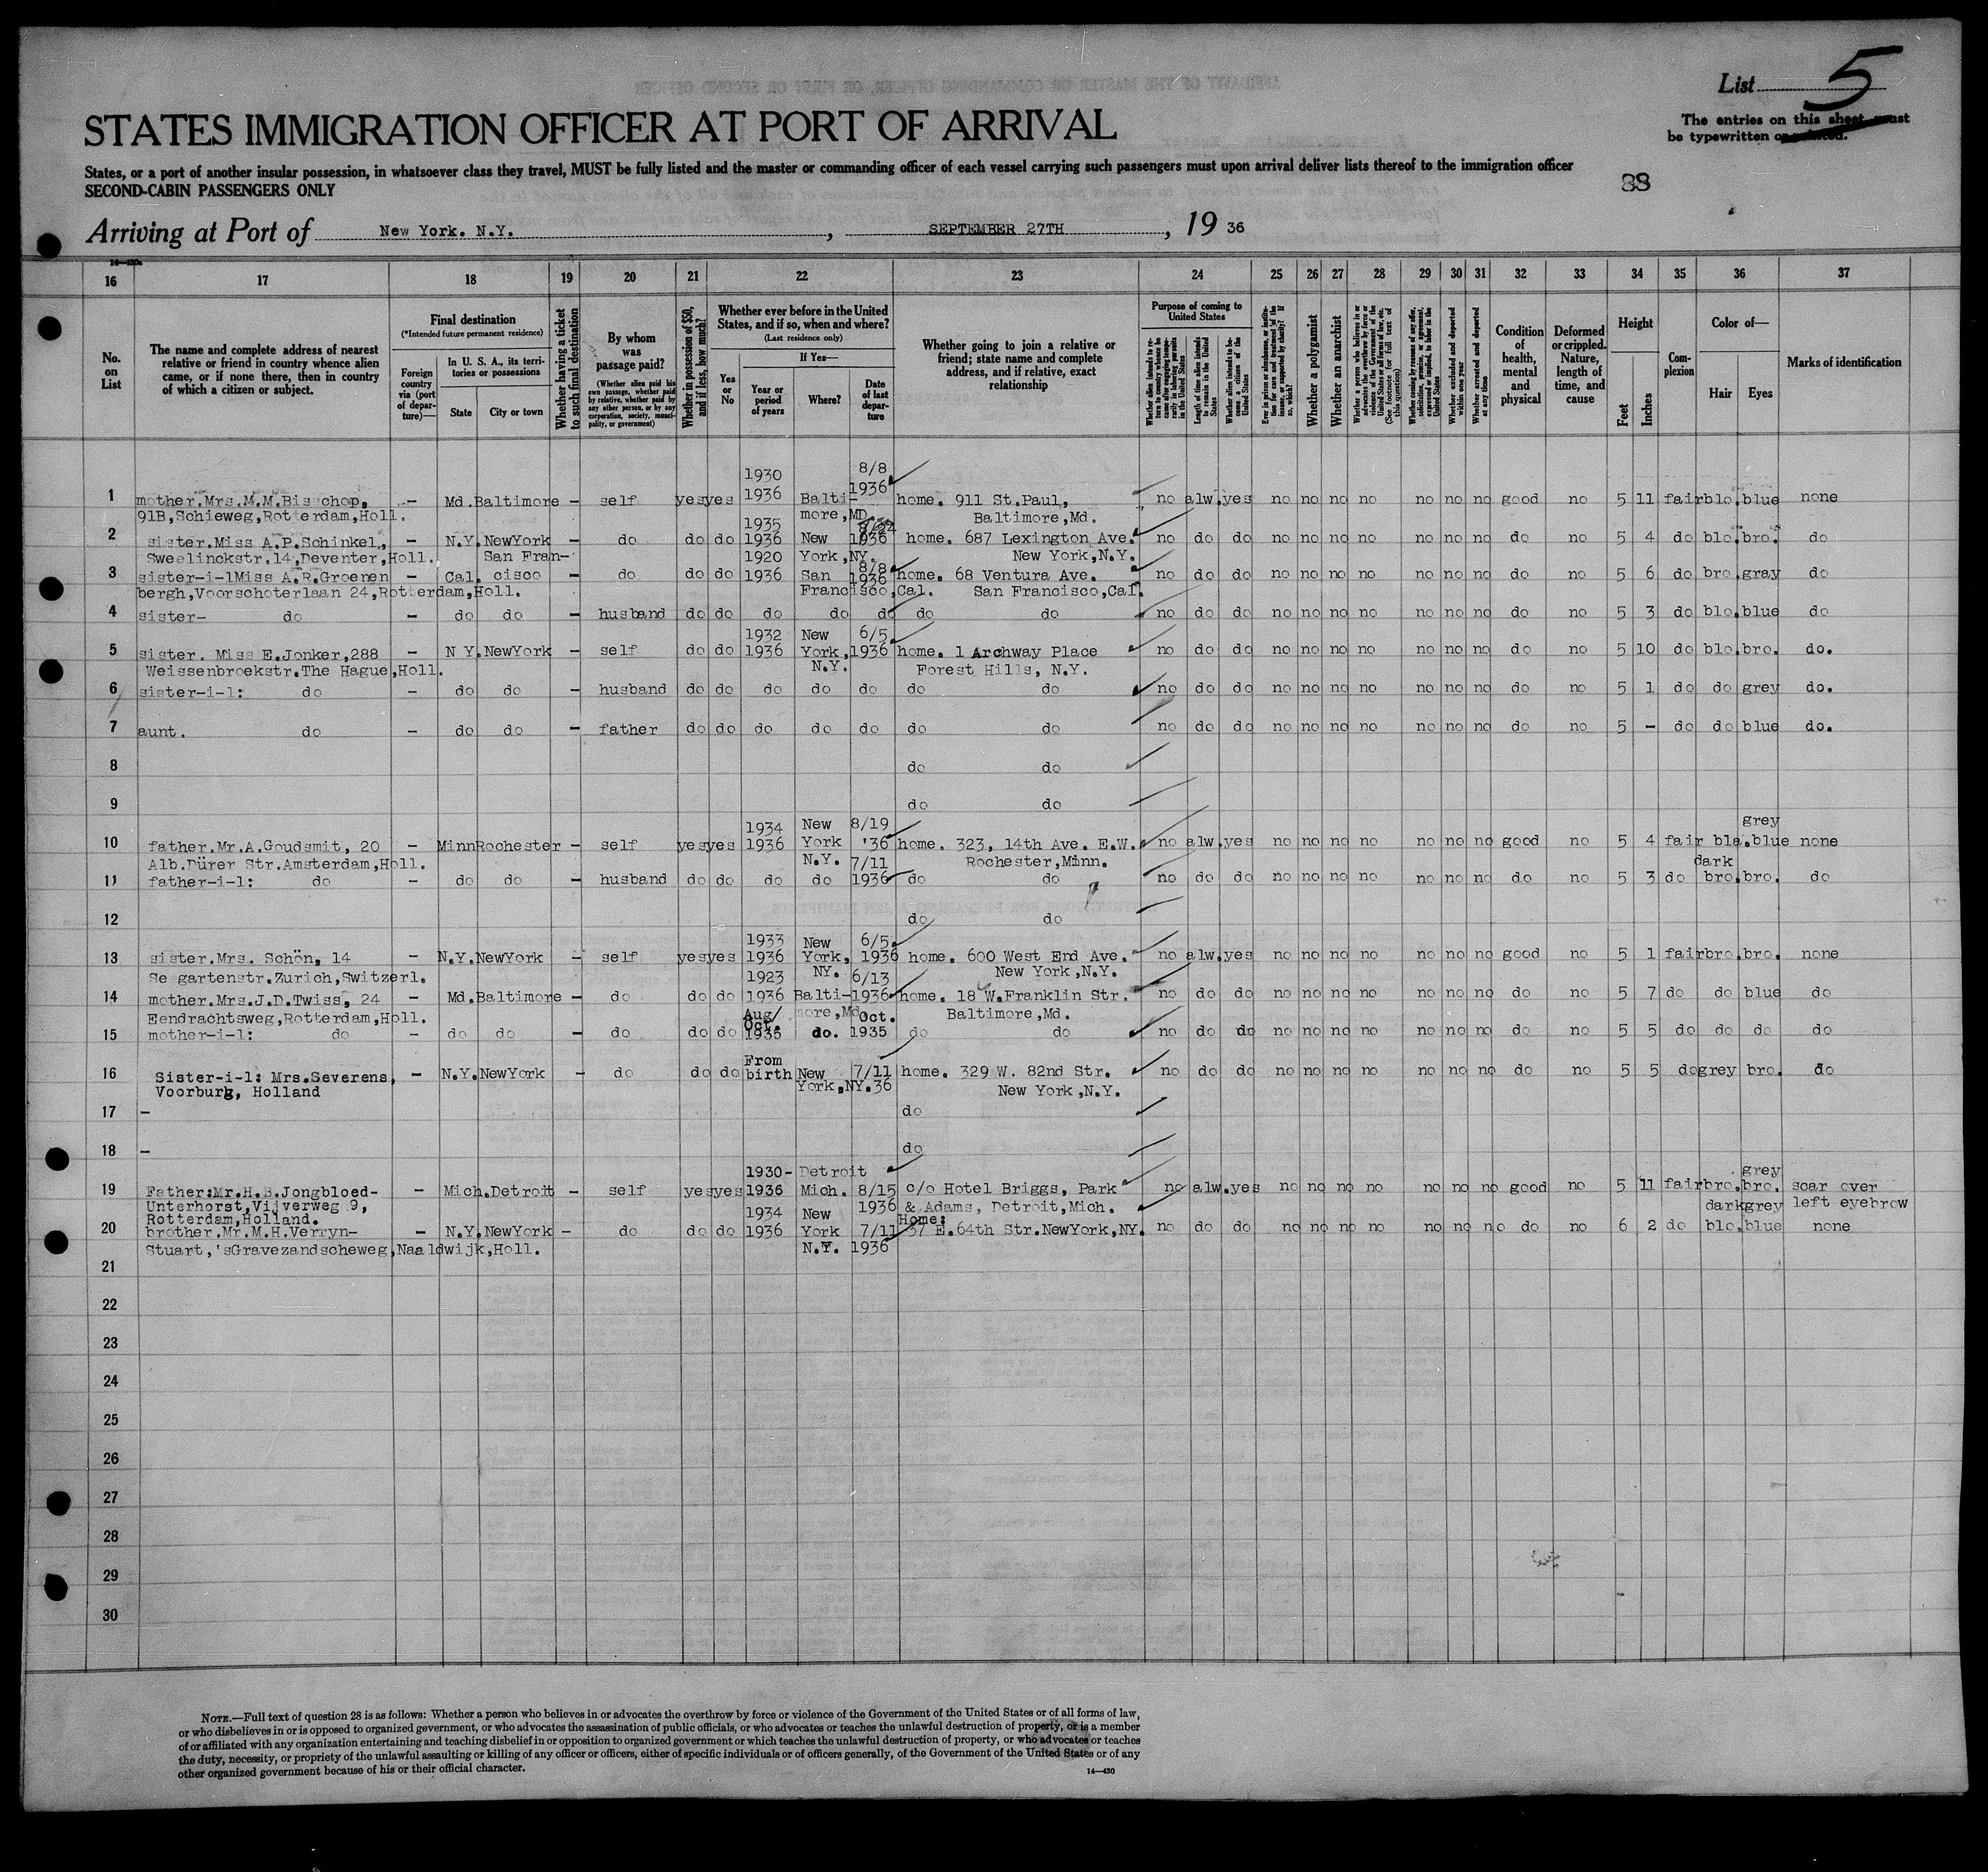 List 5
The entries on this sheet must
be typewritten or printed.
STATES IMMIGRATION OFFICER AT PORT OF ARRIVAL
States, or a port of another insular possession, in whatsoever class they travel, MUST be fully listed and the master or commanding officer of each vessel carrying such passengers must upon arrival deliver lists thereof to the immigration officer
SECOND-CABIN PASSENGERS ONLY
88
Arriving at Port of New York. N.Y. , SEPTEMBER 27TH , 19 36
16 17 18 19 20 21 22 23 24 25 26 27 28 29 30 31 32 33 34 35 36 37
No. on List
The name and complete address of nearest relative or friend in country whence alien came, or if none there, then in country of which a citizen or subject.
Final destination
(*Intended future permanent residence)
Foreign country via (port of departure)—
In U. S. A., its territories or possessions
State
City or town
Whether having a ticket to such final destination
By whom was passage paid?
(Whether alien paid his own passage, whether paid by relative, whether paid by any other person, or by any corporation, society, municipality, or government)
Whether in possession of $50, and if less, how much?
Whether ever before in the United States, and if so, when and where?
(Last residence only)
Yes or No
If Yes—
Year or period of years
Where?
Date of last departure
Whether going to join a relative or friend; state name and complete address, and if relative, exact relationship
Purpose of coming to United States
Whether alien intends to return to country whence he came after engaging temporarily in laboring pursuits in the United States
Length of time alien intends to remain in the United States
Whether alien intends to become a citizen of the United States
Whether a polygamist
Whether an anarchist
Whether excluded and deported within one year
Whether arrested and deported at any time
Condition of health, mental and physical
Deformed or crippled. Nature, length of time, and cause
Height
Feet
Inches
Complexion
Color of—
Hair
Eyes
Marks of identification
1930 8/8
1 mother.Mrs.M.M.Bisschop, - Md. Baltimore - self yes yes 1936 Balti- 1936 home. 911 St.Paul, no alw. yes no no no no no no no good no 5 11 fair blo. blue none
91B,Schieweg,Rotterdam,Holl. more,MD Baltimore,Md.
1935 8/24
2 sister.Miss A.P.Schinkel, - N.Y. NewYork - do do do 1936 New 1936 home. 687 Lexington Ave. no do do no no no no no no no do no 5 4 do blo. bro. do
Sweelinckstr.14,Deventer,Holl. San Fran- 1920 York,NY. New York,N.Y.
8/8
3 sister-i-lMiss A.R.Groenen - Cal. cisco - do do do 1936 San 1936 home. 68 Ventura Ave. no do do no no no no no no no do no 5 6 do bro. gray do
bergh,Voorschoterlaan 24,Rotterdam,Holl. Francisco,Cal. San Francisco,Cal.
4 sister- do - do do - husband do do do do do do do no do do no no no no no no no do no 5 3 do blo. blue do
1932 New 6/5
5 sister. Miss E.Jonker,288 - N Y. NewYork - self do do 1936 York, 1936 home. 1 Archway Place no do do no no no no no no no do no 5 10 do blo. bro. do.
Weissenbroekstr.The Hague,Holl. N.Y. Forest Hills, N.Y.
6 sister-i-l: do - do do - husband do do do do do do do no do do no no no no no no no do no 5 1 do do grey do.
7 aunt. do - do do - father do do do do do do do no do do no no no no no no no do no 5 - do do blue do.
8 do do
9 do do
1934 New 8/19 grey
10 father.Mr.A.Goudsmit, 20 - Minn Rochester - self yes yes 1936 York '36 home. 323, 14th Ave. E.W. no alw. yes no no no no no no no good no 5 4 fair bla. blue none
Alb.Dürer Str.Amsterdam,Holl. N.Y. 7/11 Rochester,Minn. dark
11 father-i-l: do - do do - husband do do do do 1936 do do no do do no no no no no no no do no 5 3 do bro. bro. do
12 do do
1933 New 6/5
13 sister.Mrs. Schön, 14 - N.Y. NewYork - self yes yes 1936 York, 1936 home. 600 West End Ave. no alw. yes no no no no no no no good no 5 1 fair bro. bro. none
Se gartenstr.Zurich,Switzerl. 1923 NY. 6/13 New York,N.Y.
14 mother.Mrs.J.D.Twiss, 24 - Md. Baltimore - do do do 1936 Balti- 1936 home. 18 W.Franklin Str. no do do no no no no no no no do no 5 7 do do blue do
Eendrachtsweg,Rotterdam,Holl. Aug/ more,Md. Oct. Baltimore,Md.
Oct.
15 mother-i-l: do - do do - do do do 1935 do. 1935 do do no do do no no no no no no no do no 5 5 do do do do
From
16 Sister-i-l: Mrs.Severens, - N.Y. NewYork - do do do birth New 7/11 home. 329 W. 82nd Str. no do do no no no no no no no do no 5 5 do grey bro. do
Voorburg, Holland York,NY. 36 New York,N.Y.
17 - do
18 - do
1930- Detroit grey
19 Father:Mr.H.B.Jongbloed- - Mich. Detroit - self yes yes 1936 Mich. 8/15 c/o Hotel Briggs, Park no alw. yes no no no no no no no good no 5 11 fair bro. bro. scar over
Unterhorst,Vijverweg 9, 1934 New 1936 & Adams, Detroit,Mich. dark grey left eyebrow
Rotterdam,Holland. Home:
20 brother.Mr.M.H.Verryn- - N.Y. NewYork - do do do 1936 York 7/11 37 E.64th Str.NewYork,NY. no do do no no no no no no no do no 6 2 do blo. blue none
Stuart,'sGravezandscheweg,Naaldwijk,Holl. N.Y. 1936
21
22
23
24
25
26
27
28
29
30
NOTE.—Full text of question 28 is as follows: Whether a person who believes in or advocates the overthrow by force or violence of the Government of the United States or of all forms of law,
or who disbelieves in or is opposed to organized government, or who advocates the assassination of public officials, or who advocates or teaches the unlawful destruction of property, or is a member
of or affiliated with any organization entertaining and teaching disbelief in or opposition to organized government or which teaches the unlawful destruction of property, or who advocates or teaches
the duty, necessity, or propriety of the unlawful assaulting or killing of any officer or officers, either of specific individuals or of officers generally, of the Government of the United States or of any
other organized government because of his or their official character.
14—430